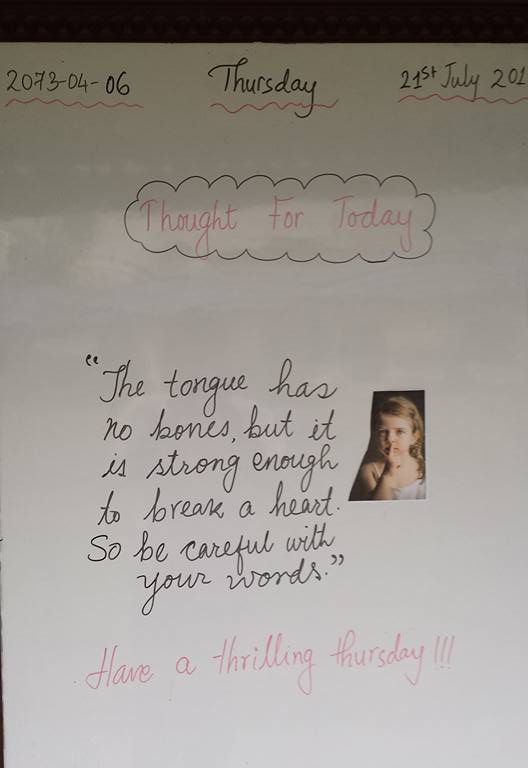 2073-04-06 Thursday 21st July 201
Thought For Today
"The tongue has
no bones, but it
is strong enough
to break a heart.
So be careful with
your words."
Have a thrilling thursday!!!